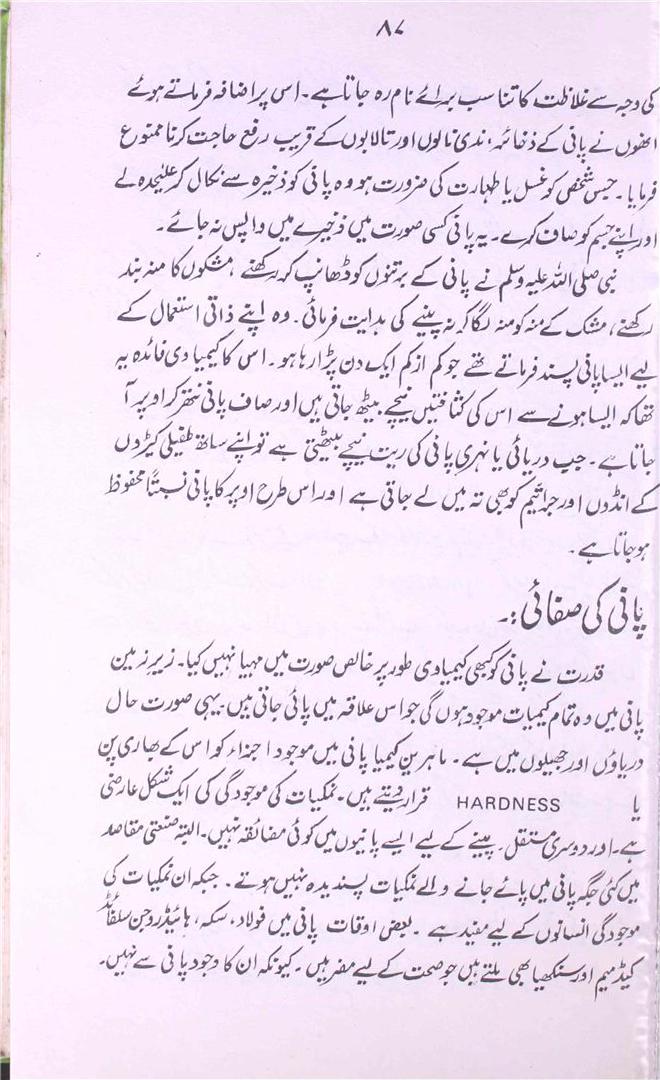 ۸۷
کی وجہ سے غلاظت کا تناسب برائے نام رہ جاتا ہے۔ اس پر اضافہ فرماتے ہوئے
انھوں نے پانی کے ذخائر، ندی نالوں اور تالابوں کے قریب رفع حاجت کرنا ممنوع
فرمایا۔ جس شخص کو غسل یا طہارت کی ضرورت ہو وہ پانی کو ذخیرہ سے نکال کر علیٰحدہ لے
اور اپنے جسم کو صاف کرے۔ یہ پانی کسی صورت میں ذخیرے میں واپس نہ جائے۔
نبی صلی اللہ علیہ وسلم نے پانی کے برتنوں کو ڈھانپ کر رکھنے، مشکوں کا منہ بند
رکھنے، مشک کے منہ کو منہ لگا کر نہ پینے کی ہدایت فرمائی۔ وہ اپنے ذاتی استعمال کے
لیے ایسا پانی پسند فرماتے تھے جو کم از کم ایک دن پڑا رہا ہو۔ اس کا کیمیاوی فائدہ یہ
تھا کہ ایسا ہونے سے اس کی کثافتیں نیچے بیٹھ جاتی ہیں اور صاف پانی نتھر کر اوپر آ
جاتا ہے۔ جب دریائی یا نہری پانی کی ریت نیچے بیٹھتی ہے تو اپنے ساتھ طفیلی کیڑوں
کے انڈوں اور جراثیم کو بھی تہ میں لے جاتی ہے اور اس طرح اوپر کا پانی نسبتاً محفوظ
ہو جاتا ہے۔
پانی کی صفائی :۔
قدرت نے پانی کو کبھی کیمیاوی طور پر خالص صورت میں مہیا نہیں کیا۔ زیر زمین
پانی میں وہ تمام کیمیات موجود ہوں گی جو اس علاقہ میں پائی جاتی ہیں۔ یہی صورت حال
دریاؤں اور جھیلوں میں ہے۔ ماہرین کیمیا پانی میں موجود اجزاء کو اس کے بھاری پن
یا HARDNESS قرار دیتے ہیں۔ نمکیات کی موجودگی کی ایک شکل عارضی
ہے۔ اور دوسری مستقل۔ پینے کے لیے ایسے پانیوں میں کوئی مضائقہ نہیں۔ البتہ صنعتی مقاصد
میں کئی جگہ پانی میں پائے جانے والے نمکیات پسندیدہ نہیں ہوتے۔ جبکہ ان نمکیات کی
موجودگی انسانوں کے لیے مفید ہے۔ بعض اوقات پانی میں فولاد، سکہ، ہائیڈروجن سلفائڈ
کیڈمیم اور سنکھیا بھی ملتے ہیں جو صحت کے لیے مضر ہیں۔ کیونکہ ان کا وجود پانی سے نہیں۔